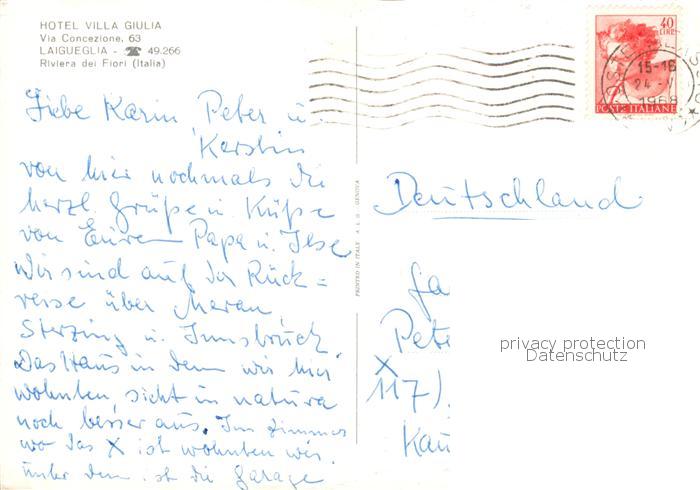 HOTEL VILLA GIULIA
Via Concezione, 63
LAIGUEGLIA - ☎ 49.266
Riviera dei Fiori (Italia)
Liebe Karin Peter u
Kerstin
von hier nochmals die
herzl. Grüße u. Küße
von Euren Papa u. Ilse
Wir sind auf der Rück=
reise über Meran,
Sterzing u. Innsbruck.
Das Haus in dem wir hier
wohnten, sieht in natura
noch besser aus. Im Zimmer
wo das X ist wohnten wir.
unter dem ist die Garage
PRINTED IN ITALY A.L.G. GENOVA
40
LIRE
POSTE ITALIANE
15-16
24
1968
Deutschland
Fa
Pete
X
117).
Kau
privacy protection
Datenschutz